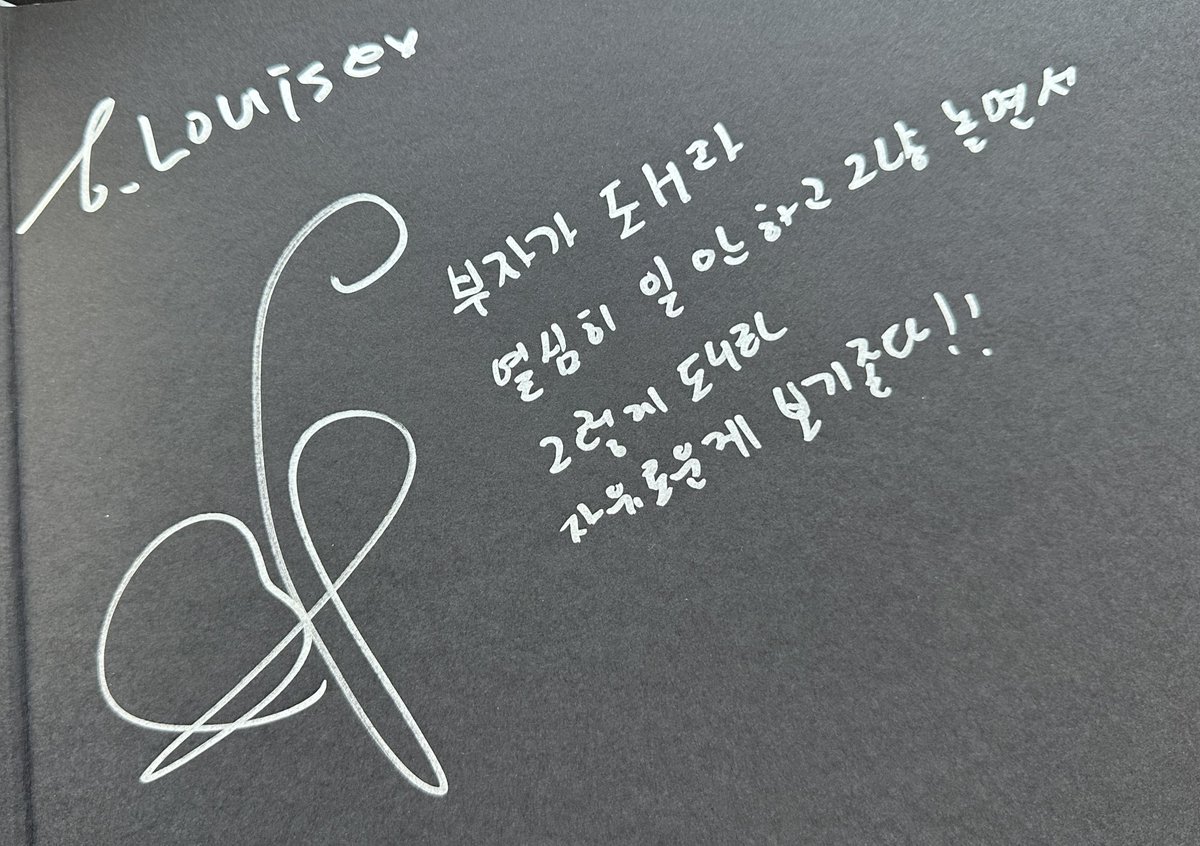 to. Louisey
부자가 돼라
열심히 일 안 하고 그냥 놀면서
그렇게 돼라
자유로운게 보기좋다!!